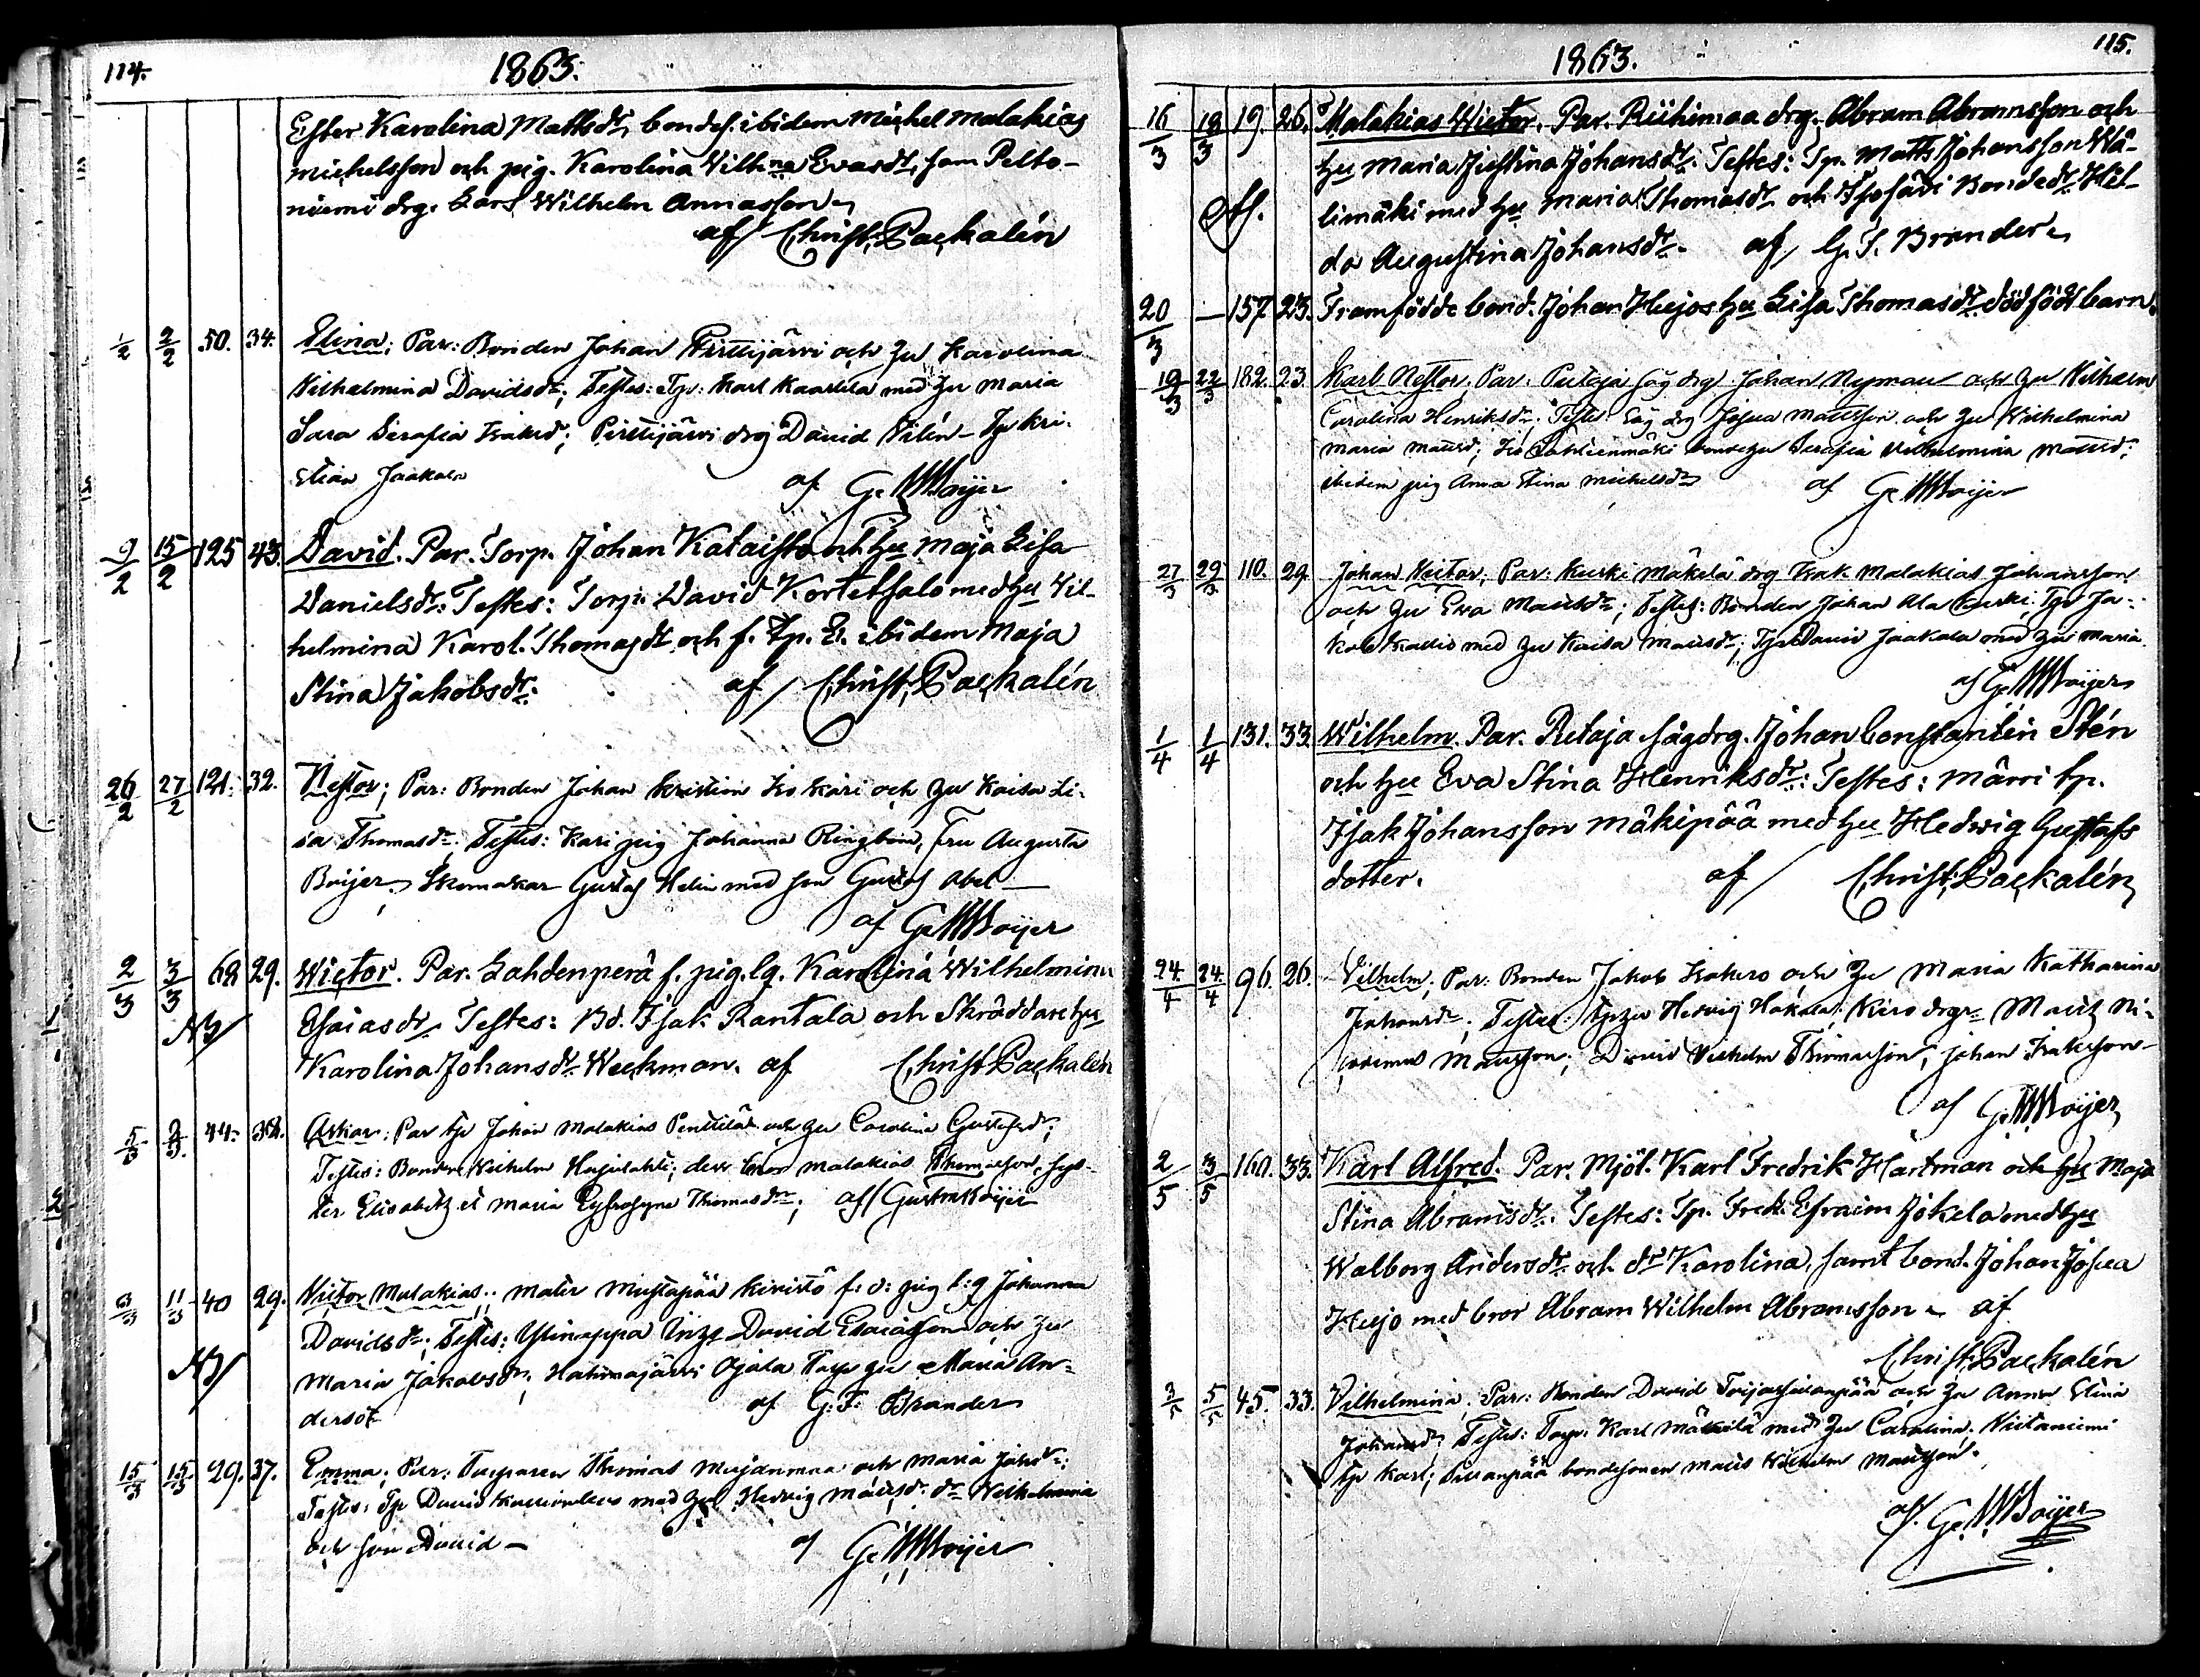 114.
1863.
Ester Karolina Mattsdr, bondes. ibidem Michel Malakias
Michelsson och pig. Karolina Vilhna Evasdr, sam Pelto-
niemi drg. Lars Wilhelm Annasson
af Christ. Packalén
1/2 2/2 50. 34. Elina; Par: Bonden Johan Pirttijärvi och hu Karolina
Vilhelmina Davidsdr; Testes: Tp: Karl Kaartila med hu Maria
Sara Serafia Isaksd; Pirttijärvi drg David Vilén – Tp Kri-
stian Jaakola af G. W Boijer
9/2 15/2 125 43. David. Par. Torp. Johan Kataisto och hu Maja Lisa
Danielsdr. Testes: Torp. David Kortetsalo med hu Vil-
helmina Karol. Thomasdr och f. Tp. E. ibidem Maja
Stina Jakobsdr. af Christ. Packalén
26/2 27/2 121. 32. Nestor; Par: Bonden Johan Kristian Iso Kari och hu Kaisa Li-
sa Thomasdr; Testes: Kari pig Johanna Ringbom, Fru Augusta
Boijer, Skomakar Gustaf Helin med son Gustaf Abel
af G W Boijer
2/3 3/3 68 29. Wictor. Par. Lahdenperä f. pig. lg. Karolina Wilhelmina
Esaiasdr. Testes: Bd. Isak Rantala och Skräddare hu
Karolina Johansdr Weckman. af Christ Packalén
5/3 44. Oskar; Par tp Johan Malakias Penttilä och hu Carolina Gustafsdr;
Testes: Bonden Wilhelm Hajulahti; dess bror Malakias Thomasson, sys-
ter Elisabetz et Maria Eufrosyne Thomasdr; af Gust W Boijer
11/3 40 29. Victor Malakias; mater Mustapää Kivistö f. d: pig l:g Johanna
Davidsdr; Testes: Ylinappa David Esaiasson och hu
Maria Jakobsdr, Hahmajärvi Ojala hu Maria An-
dersdr af G. F. Brander
15/3 15/3 29. 37. Emma; Par: Torparen Thomas Myanmaa och Maria Johdr;
Testes: Tp David med hu Hedvig Mattsdr dr Vilhelmina
och son David – af G. W Boijer
1863.
115.
16/3 18/3 19. 26. Malakias Wictor. Par. Riihimaa drg. Abram Abramsson och
hu Maria Justina Johansdr. Testes: Tp. Matts Johansson Wä-
limäki med hu Maria Thomasdr och Isosävi Bondedr Hil-
da Augustina Johansdr. af G. F. Brander
20/3 — 157 23. Framfödde bond. Johan Heijos hu Lisa Thomasdr dödfödt barn.
19/3 22/3 182. 23. Karl Nestor; Par: Putaja såg drg Johan Nyman och hu Vilhelm
Carolina Henriksdr; Testes: Såg drg Josua Mattsson och hu Wilhelmina
Maria Mattsd; Iso bonde hu Serafia Vilhelmina Mattsd;
ibidem pig Anna Stina Michelsdr af G. W Boijer
27/3 29/3 110. 29 Johan Victor; Par: Kuski Mäkelä drg Isak Malakias Johansson
och hu Eva Mattsdr; Testes: Bonden Johan Ala Kuski, Tp Ja-
kob Kallio med hu Kaisa Mattsdr; David Jaakola med hu Maria
af G. W Boijer
1/4 1/4 131. 33. Wilhelm. Par. Retaja sågdrg. Johan Constantin Stén
och hu Eva Stina Henriksdr: Testes: Märri tp.
Isak Johansson Mäkipää med hu Hedwig Gustafs
dotter. af Christ. Packalén
24/4 24/4 96. 26. Vilhelm; Par: Bonden Jakob Isokero och hu Maria Katharina
Johansdr; Testes: tp hu Hedvig Hakala; Kero drgr Matts Ni-
kodemus Mattsson; David Vilhelm Thomasson; Johan Isaksson
af G. W Boijer
2/5 3/5 160. 33. Karl Alfred. Par. Mjöl. Karl Fredrik Hartman och hu Maja
Stina Abramsdr. Testes: Tp. Fredr. Efraim Jokela med hu
Walborg Andersdr och dr Karolina, samt bond. Johan Josua
Heijo med bror Abram Wilhelm Abramsson af
Christ. Packalén
3/5 5/5 45. 33. Vilhelmina; Par: Bonden David och hu Anna Stina
Johansdr; Testes: Torp. Karl Mäkelä med hu Carolina; Nietaniemi
tp Karl; bondesonen Matts Vilhelm Mattsson.
af. G. W Boijer